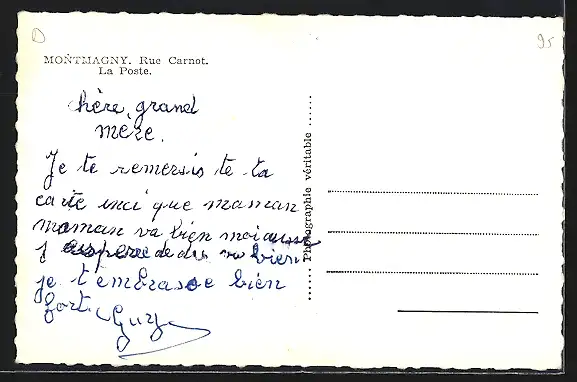 MONTMAGNY. Rue Carnot.
La Poste.
hère grand
mère.
Je te remersis te ta
carte inci que maman
maman va bien moi aussi
j de du va bien
je t'embrasse bien
fort Guy
Photographie véritable
95